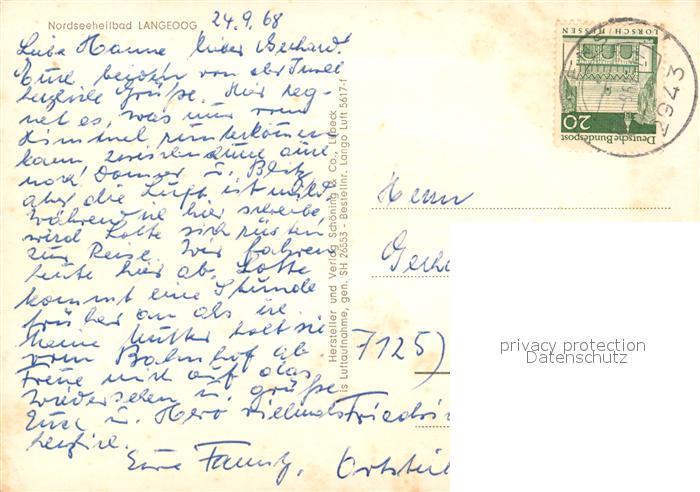 Nordseeheilbad LANGEOOG
24.9.68
Liebe Hanne lieber Gerhard!
Euch beiden von der Insel
herzliche Grüße. Hier reg-
net es, was nur vom
Himmel runterkommen
kann, zwischendurch auch
noch Donner u. Blitz,
aber die Luft ist mild.
Während ich hier schreibe,
wird Lotte sich rüsten
zur Reise. Wir fahren
heute hier ab. Lotte
kommt eine Stunde
früher an als ich.
Meine Mutter holt sie
vom Bahnhof ab.
Freue mich auf das
Wiedersehen u. grüße
Euch u. Herrn vielmals
herzlich.
Eure
Hersteller und Verlag Schöning & Co., Lübeck
is Luftaufnahme, gen. SH 26553 - Bestellnr. Lango Luft 5617-f
LORSCH/HESSEN
20
Deutsche Bundespost
2943
Herrn
7125)
Friedri
Ortsteil
privacy protection
Datenschutz